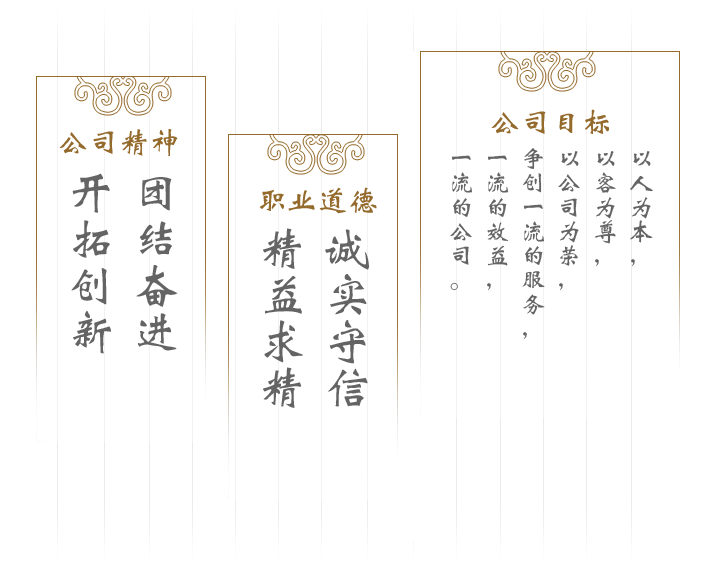 公司精神
团结奋进
开拓创新
职业道德
诚实守信
精益求精
公司目标
以人为本，
以客为尊，
以公司为荣，
争创一流的服务，
一流的效益，
一流的公司。